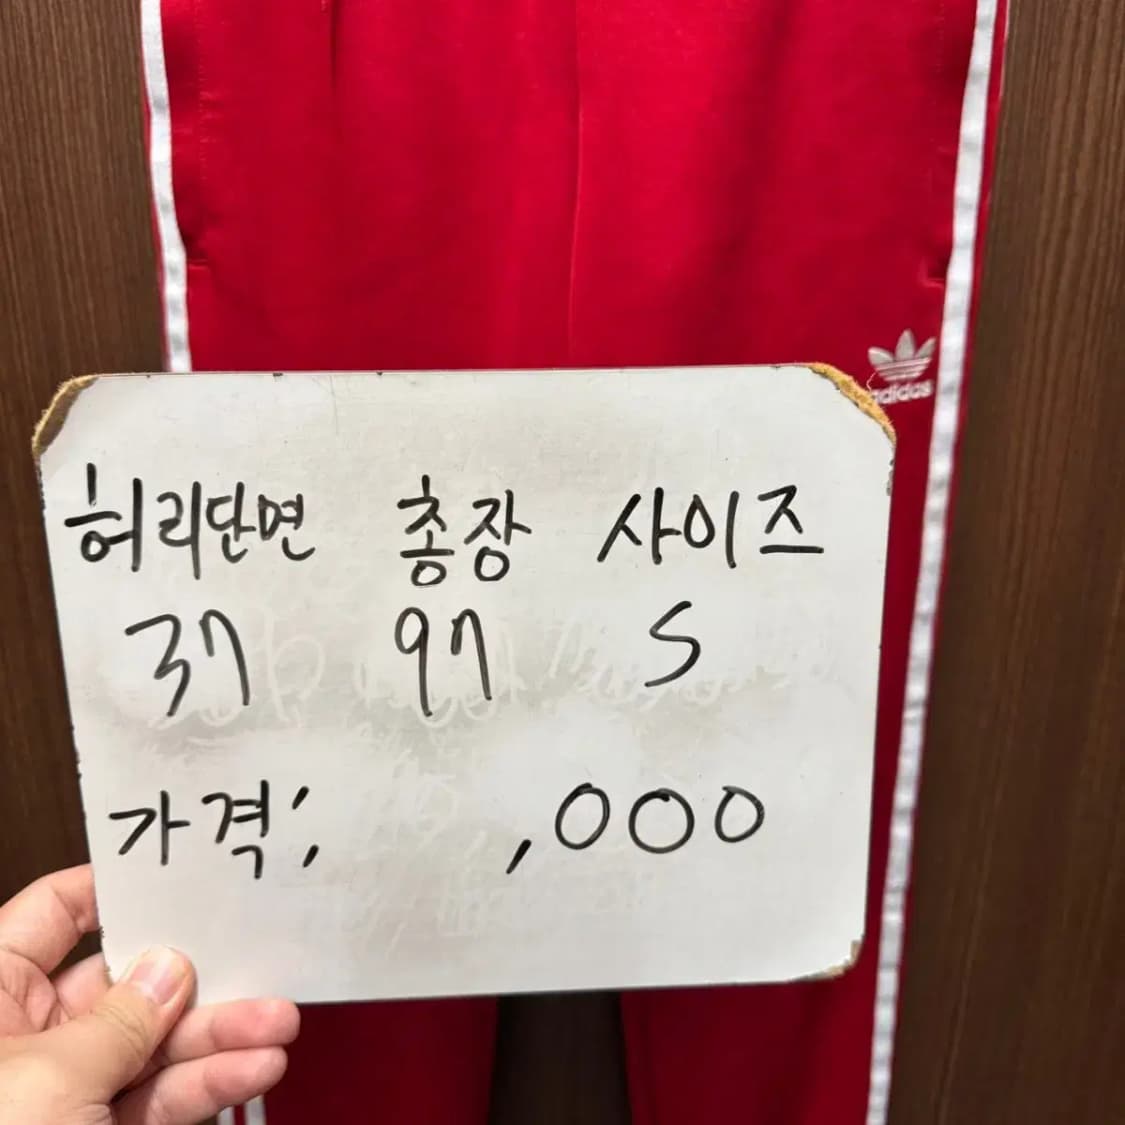 adidas
허리단면 총장 사이즈
37 97 S
가격: ,000